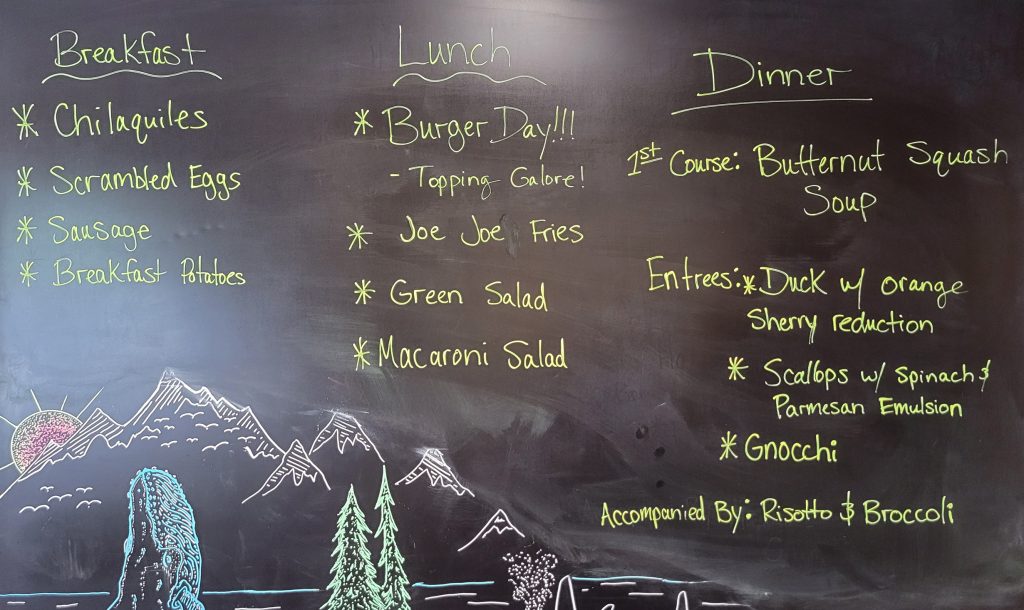 Breakfast
* Chilaquiles
* Scrambled Eggs
* Sausage
* Breakfast Potatoes
Lunch
* Burger Day!!!
- Topping Galore!
* Joe Joe Fries
* Green Salad
* Macaroni Salad
Dinner
1st Course: Butternut Squash
Soup
Entrees: * Duck w/ orange
Sherry reduction
* Scallops w/ Spinach &
Parmesan Emulsion
* Gnocchi
Accompanied By: Risotto & Broccoli